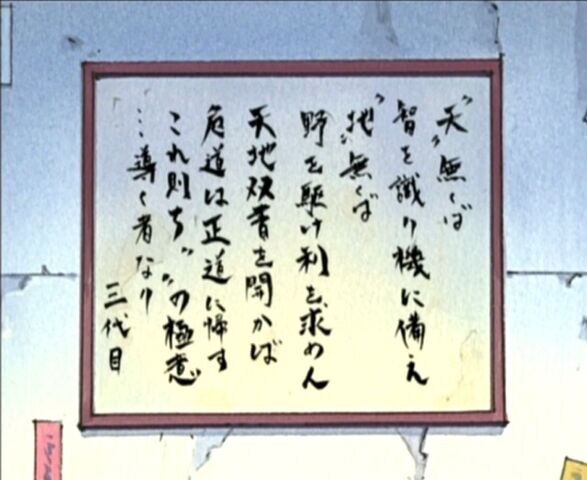 “天”無くば
智を識り機に備え
“地”無くば
野を駆け利を求めん
天地双書を開かば
危道は正道に帰す
これ則ち“”の極意
…導く者なり
三代目